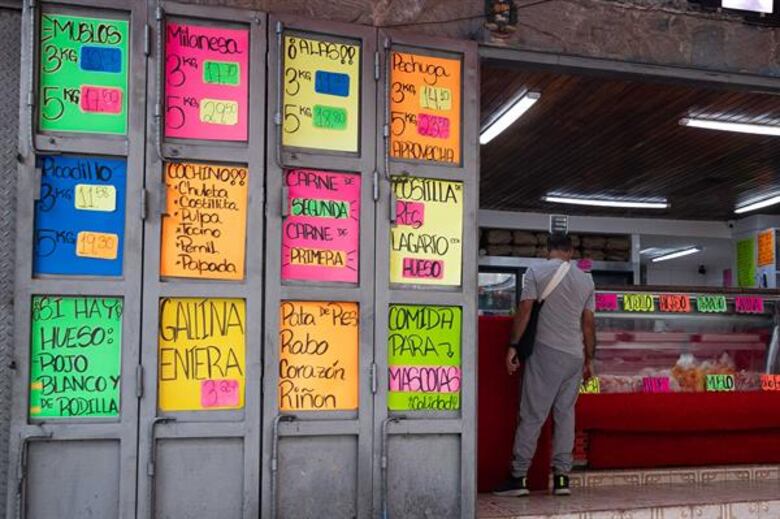 MUSLOS
3KG
5KG 17.50
Milanesa
3KG 17.70
5KG 29.50
¡ALAS!!
3KG
5KG 18.80
Pechuga
3KG 14.10
5KG 23.50
APROVECHA
Picadillo
3KG 11.58
5KG 19.30
COCHINO!!
• Chuleta
• Costillita
• Pulpa
• Tocino
• Pernil
• Papada
CARNE DE
SEGUNDA
CARNE DE
PRIMERA
COSTILLA DE
RES
LAGARTO
CON
HUESO
¡SI HAY!
HUESO:
ROJO
BLANCO Y
DE RODILLA
GALLINA
ENTERA
Pata DE RES
Rabo
Corazón
Riñon
COMIDA
PARA
MASCOTAS
¡Calidad!
POLLO